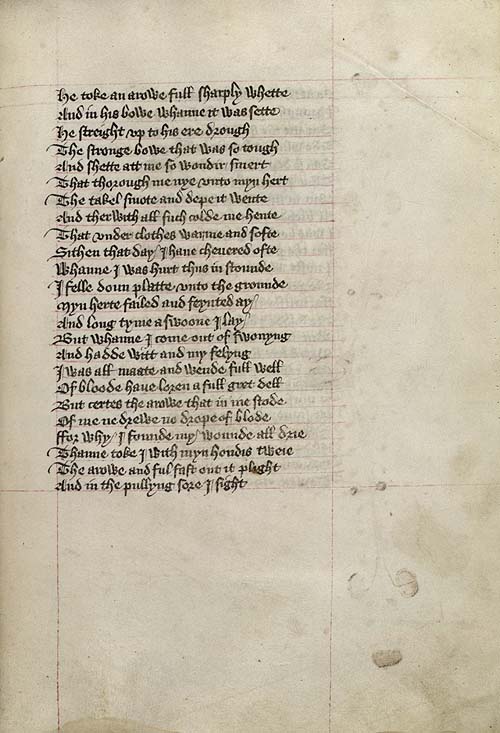 He toke an arowe full sharply whette
And in his bowe whanne it was sette
He streight vp to his ere drough
The stronge bowe that was so tough
And shette att me so wondir smert
That thorough me nye vnto myn hert
The takel smote and depe it wente
And therwith all such colde me hente
That vnder clothes warme and softe
Sithen that day / I haue cheuered ofte
Whanne I was hurt thus in stounde
I felle doun platte vnto the grounde
Myn herte failed and feynted ay /
And long tyme a swoone I lay /
But whanne I come out of swonyng
And hadde witt and my felyng
I was all maate and wende full well
Of bloode haue loren a full gret dell
But certes the arowe that in me stode
Of me ne drewe no drope of blode
ffor why / I founde my wounde all drie
Thanne toke I with myn hondis tweie
The arowe and ful fast out it plight
And in the pullyng sore I sight